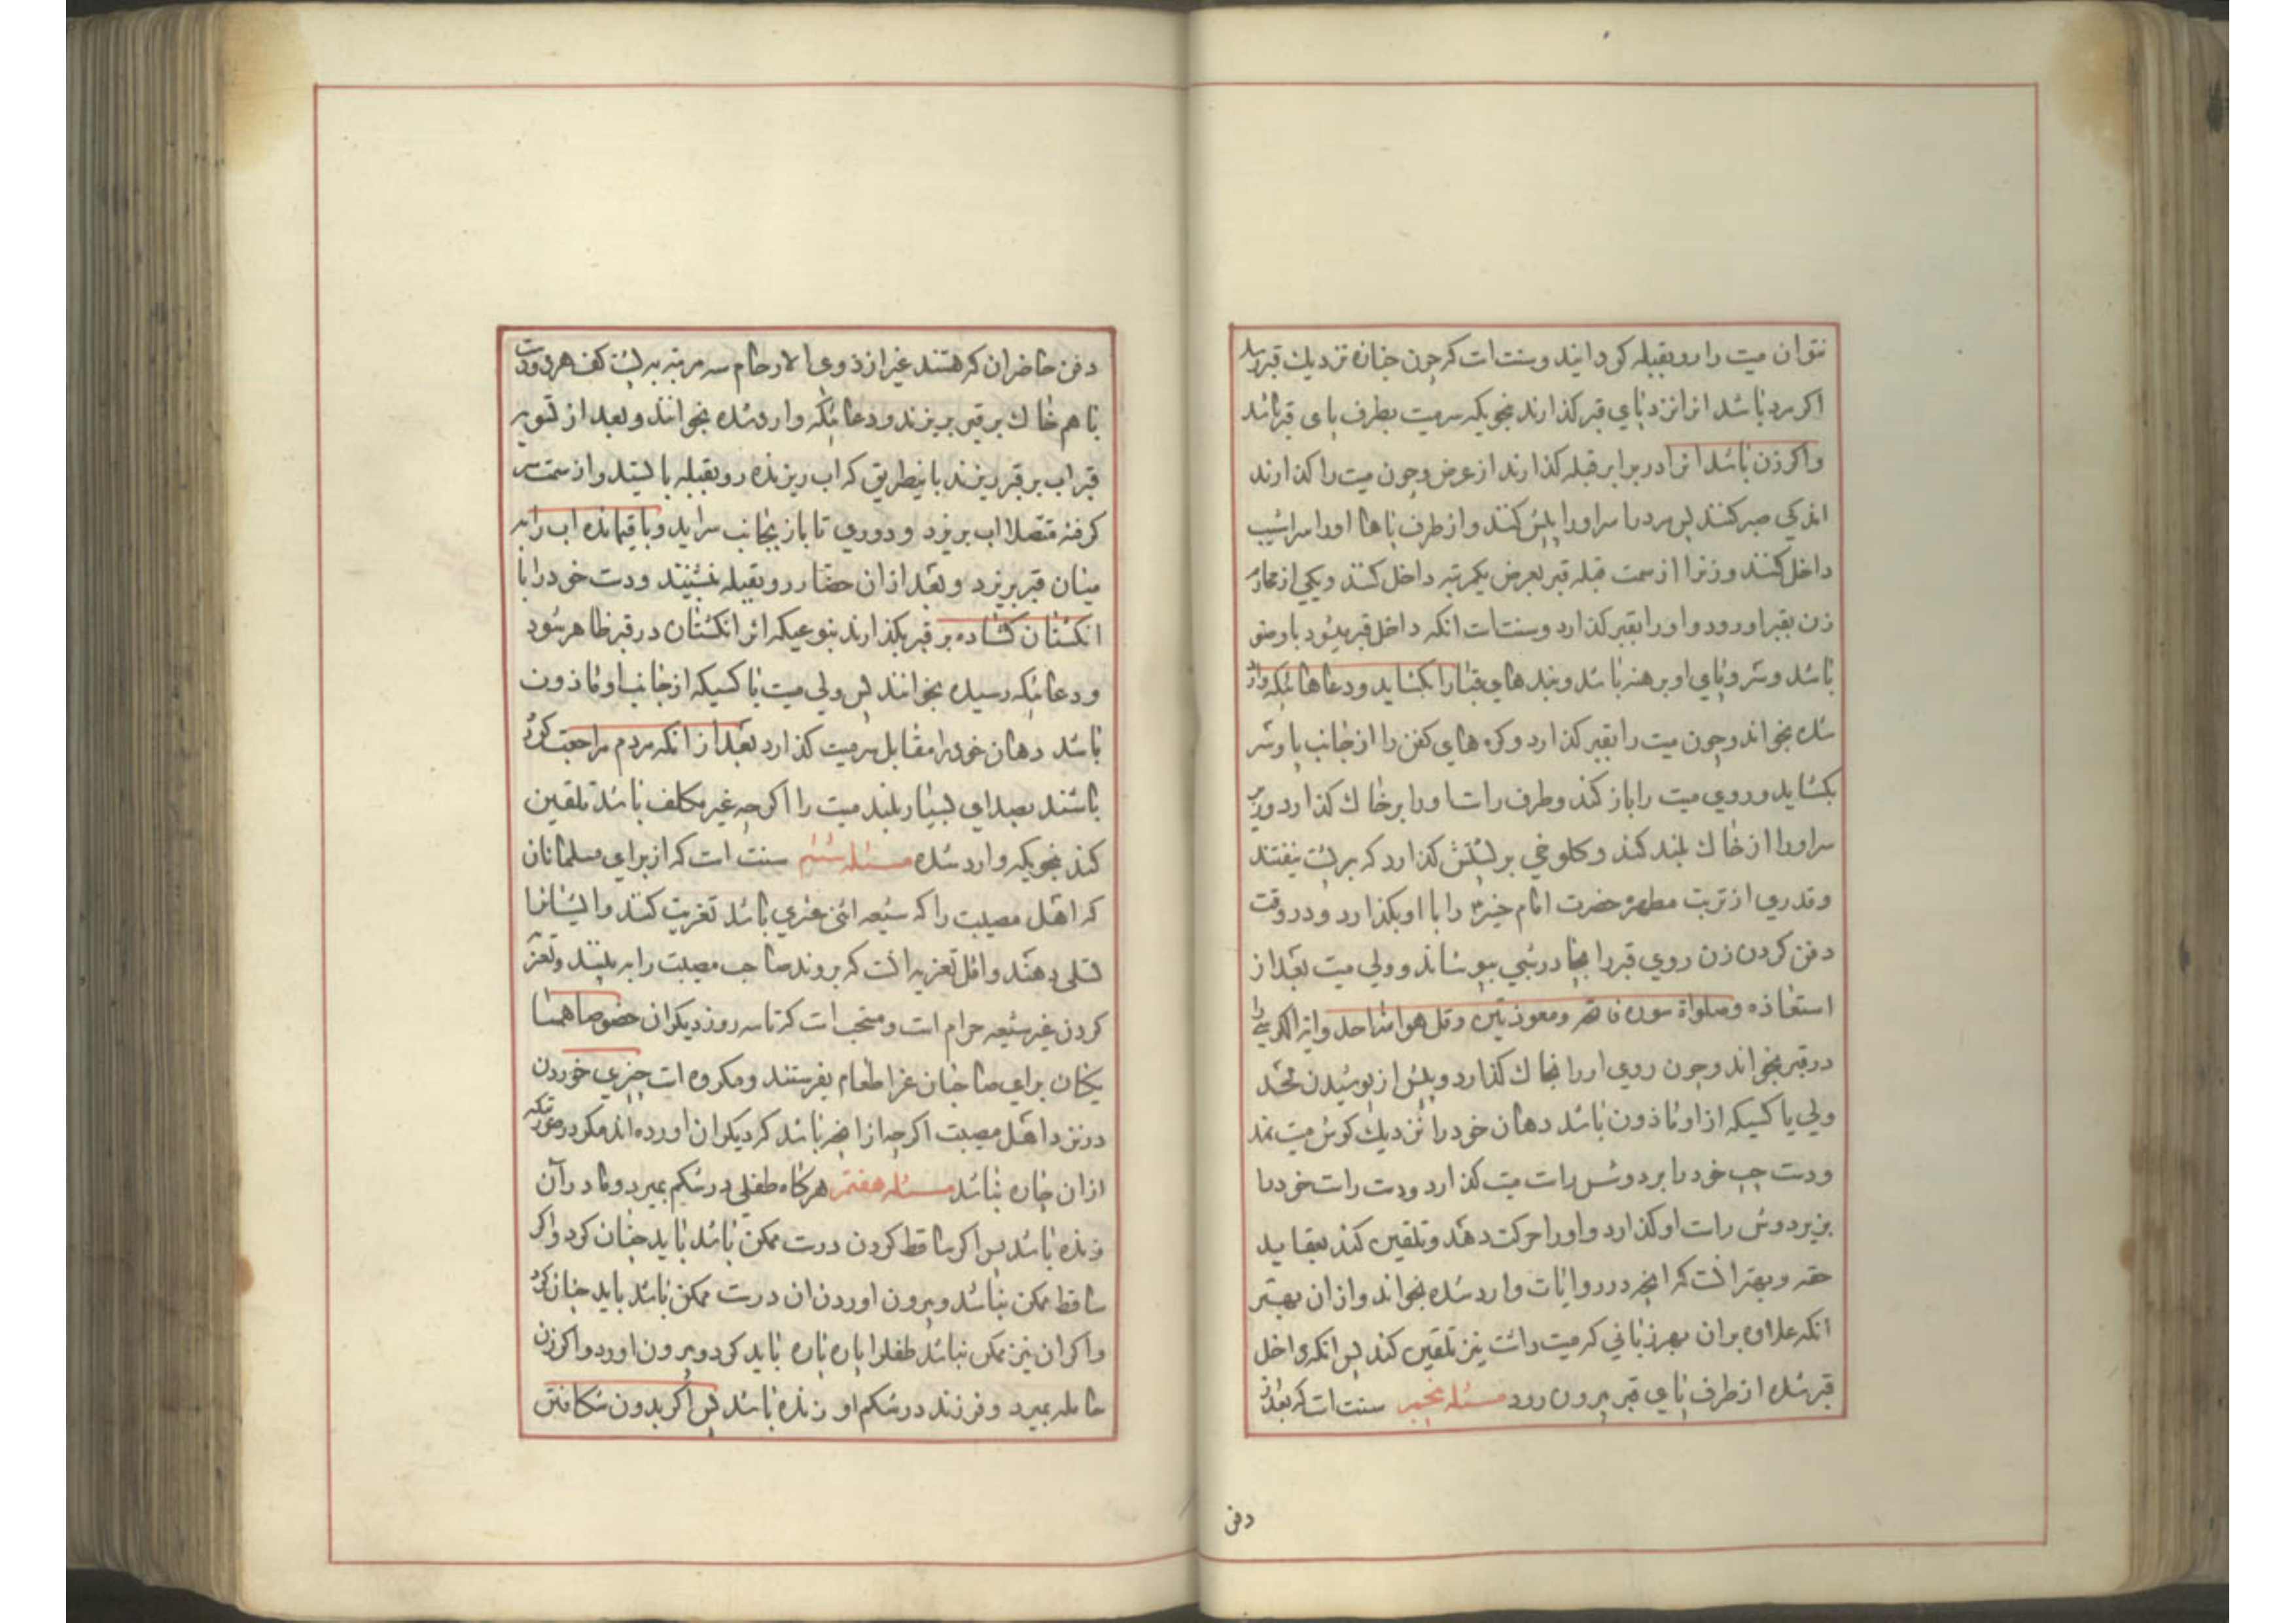 نتوان میت را رو بقبله کردانید و سنت است که چون جنازه نزدیك قبر رسد
اکر مرد باشد انرا نزد پای قبر کذارند بنحویکه سر میت بطرف پای قبر باشد
واکر زن باشد انرا در برابر قبله کذارند از عرض و چون میت را کذارند
اندکی صبر کنند پس مرد را سر او را پیش کنند و از طرف پاها او را سراشیب
داخل کنند و زنرا از سمت قبله قبر بعرض یکمرتبه داخل کنند و یکی از محارم
زن بقبر او رود و او را بقبر کذارد و سنت است انکه داخل قبر میشود با وضو
باشد و سر و پای او برهنه باشد و بندهای قبا را بکشاید و دعاهائیکه وارد
شده بخواند و چون میت را بقبر کذارد و کره های کفن را از جانب پا و سر
بکشاید و روی میت را باز کند و طرف راست او را بر خاك کذارد و زیر
سر او را از خاك بلند کند و کلوخی بر پشتش کذارد که بر پشت نیفتند
و قدری از تربت مطهره حضرت امام را با او بکذارد و در وقت
دفن کردن زن روی قبر را بچادر شبی بپوشاند و ولی میت بعد از
استعاذه و صلواة سوره فاتحه و معوذتین و قل هو الله احد و ایة الکرسی را
در قبر بخواند و چون روی او را بخاك کذارد و پیش از پوشیدن لحد
ولی یا کسیکه از او ماذون باشد دهان خود را نزدیك کوش میت نهد
و دست چپ خود را بر دوش راست میت کذارد و دست راست خود را
بزیر دوش راست او کذارد و او را حرکت دهد و تلقین کند بعقاید
حقه و بهتر انست که انچه در روایات وارد شده بخواند و از ان بهتر
انکه علاوه بران بهر زبانی که میت دانست نیز تلقین کند پس انکه داخل
قبر شده از طرف پای قبر بیرون رود مسئله پنجم سنت است که بعد از
دفن
دفن حاضران که هستند غیر از ذوی الارحام سه مرتبه به پشت کف هر دو دست
با هم خاك بر قبر بریزند و دعائیکه وارد شده بخوانند و بعد از تسویه
قبر اب بر قبر ریزند باینطریق که اب ریزنده رو بقبله بایستد و از سمت سر
کرفته متصلا اب بریزد و دوری تا باز بجانب سر اید و باقیمانده اب را به
میان قبر بریزد و بعد از ان حضار رو بقبله بنشینند و دست خود را با
انکشتان کشاده بر قبر بکذارند بنوعیکه اثر انکشتان در قبر ظاهر شود
و دعائیکه رسیده بخوانند پس ولی میت یا کسیکه از جانب او ماذون
باشد دهان خود را مقابل سر میت کذارد بعد از انکه مردم مراجعت کرده
باشند بصدای بسیار بلند میت را اکر چه غیر مکلف باشد تلقین
کند بنحویکه وارد شده مسئله ششم سنت است که از برای مسلمانان
که اهل مصیبت را که شیعه اثنی عشری باشد تعزیت کنند و ایشانرا
تسلی دهند و اقل تعزیه انست که بروند صاحب مصیبت را به بینند و تعزیه
کردن غیر شیعه حرام است و مستحب است که تا سه روز دیکران خصوصا همسا
یکان برای صاحبان عزا طعام بفرستند و مکروه است چیزی خوردن
در نزد اهل مصیبت اکر چه از انچه باشد که دیکران اورده اند مکر در صورتیکه
از ان چاره نباشد مسئله هفتم هرکاه طفلی در شکم بمیرد و مادر آن
زنده باشد پس اکر ساقط کردن درست ممکن باشد باید چنان کرد و اکر
ساقط ممکن نباشد و بیرون اوردن ان درست ممکن باشد باید چنان کرد
و اکر ان نیز ممکن نباشد طفلرا پاره پاره باید کرد و بیرون اورد و اکر زن
حامله بمیرد و فرزند در شکم او زنده باشد پس اکر بدون شکافتن